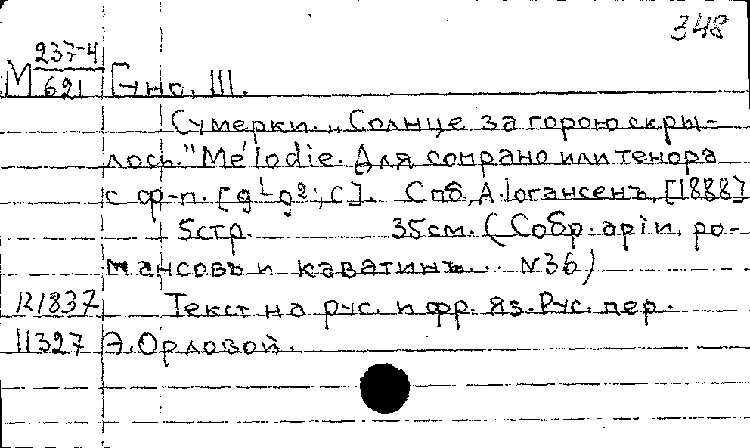 348
М 237-4
621 Гуно, Ш.
Сумерки. „Солнце за горою скры-
лось." Mélodie. Для сопрано или тенора
с ф-п. [g1-g2; C]. Спб, А. Іогансенъ, [1888]
5стр. 35см. (Собр. арій, ро-
мансовъ и каватинъ... №36)
121837 Текст на рус. и фр. яз. Рус. пер.
11327 Э. Орловой.